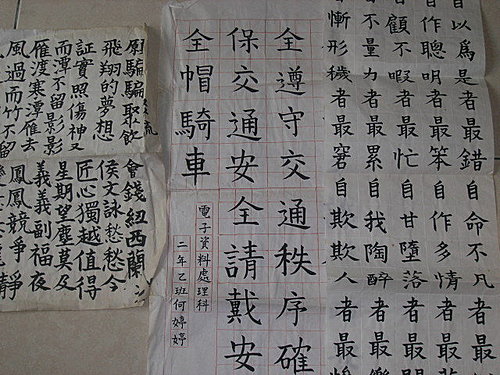 自以為是者最錯
自作聰明者最笨
顧不暇者最忙
自不量力者最累
慚形穢者最窘
自命不凡
自作多情者最
自甘墮落者最
自我陶醉者最
自欺欺人者最
全遵守交通秩序確
保交通安全請戴安
全帽騎車
電子資料處理科
二年乙班何婷
騙騙聚飲
飛翔的夢想
証實照傷神又
而潭不留影影
雁渡寒潭雁去
風過而竹不留
會錢紐西蘭
侯文詠愁愁今
匠心獨越值得
星期望塵莫及
義義副福夜
鳳鳳競爭靜